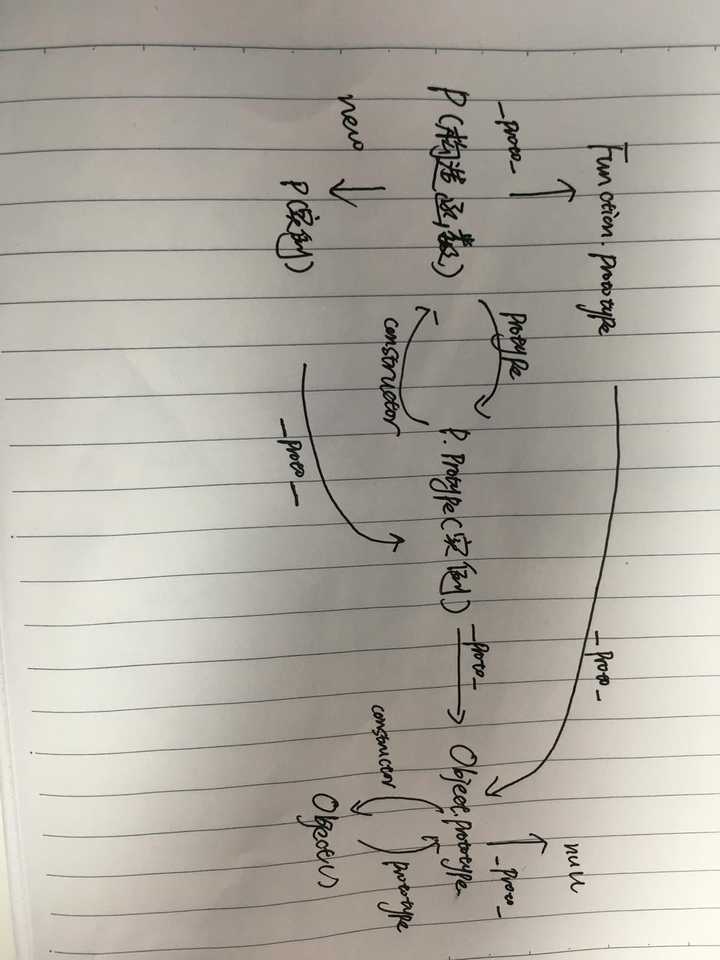 Function.prototype
null
_proto_
_proto_
_proto_
P(构造函数)
prototype
constructor
P.Protype(实例)
_proto_
Object.prototype
new
P(实例)
_proto_
constructor
prototype
Object()